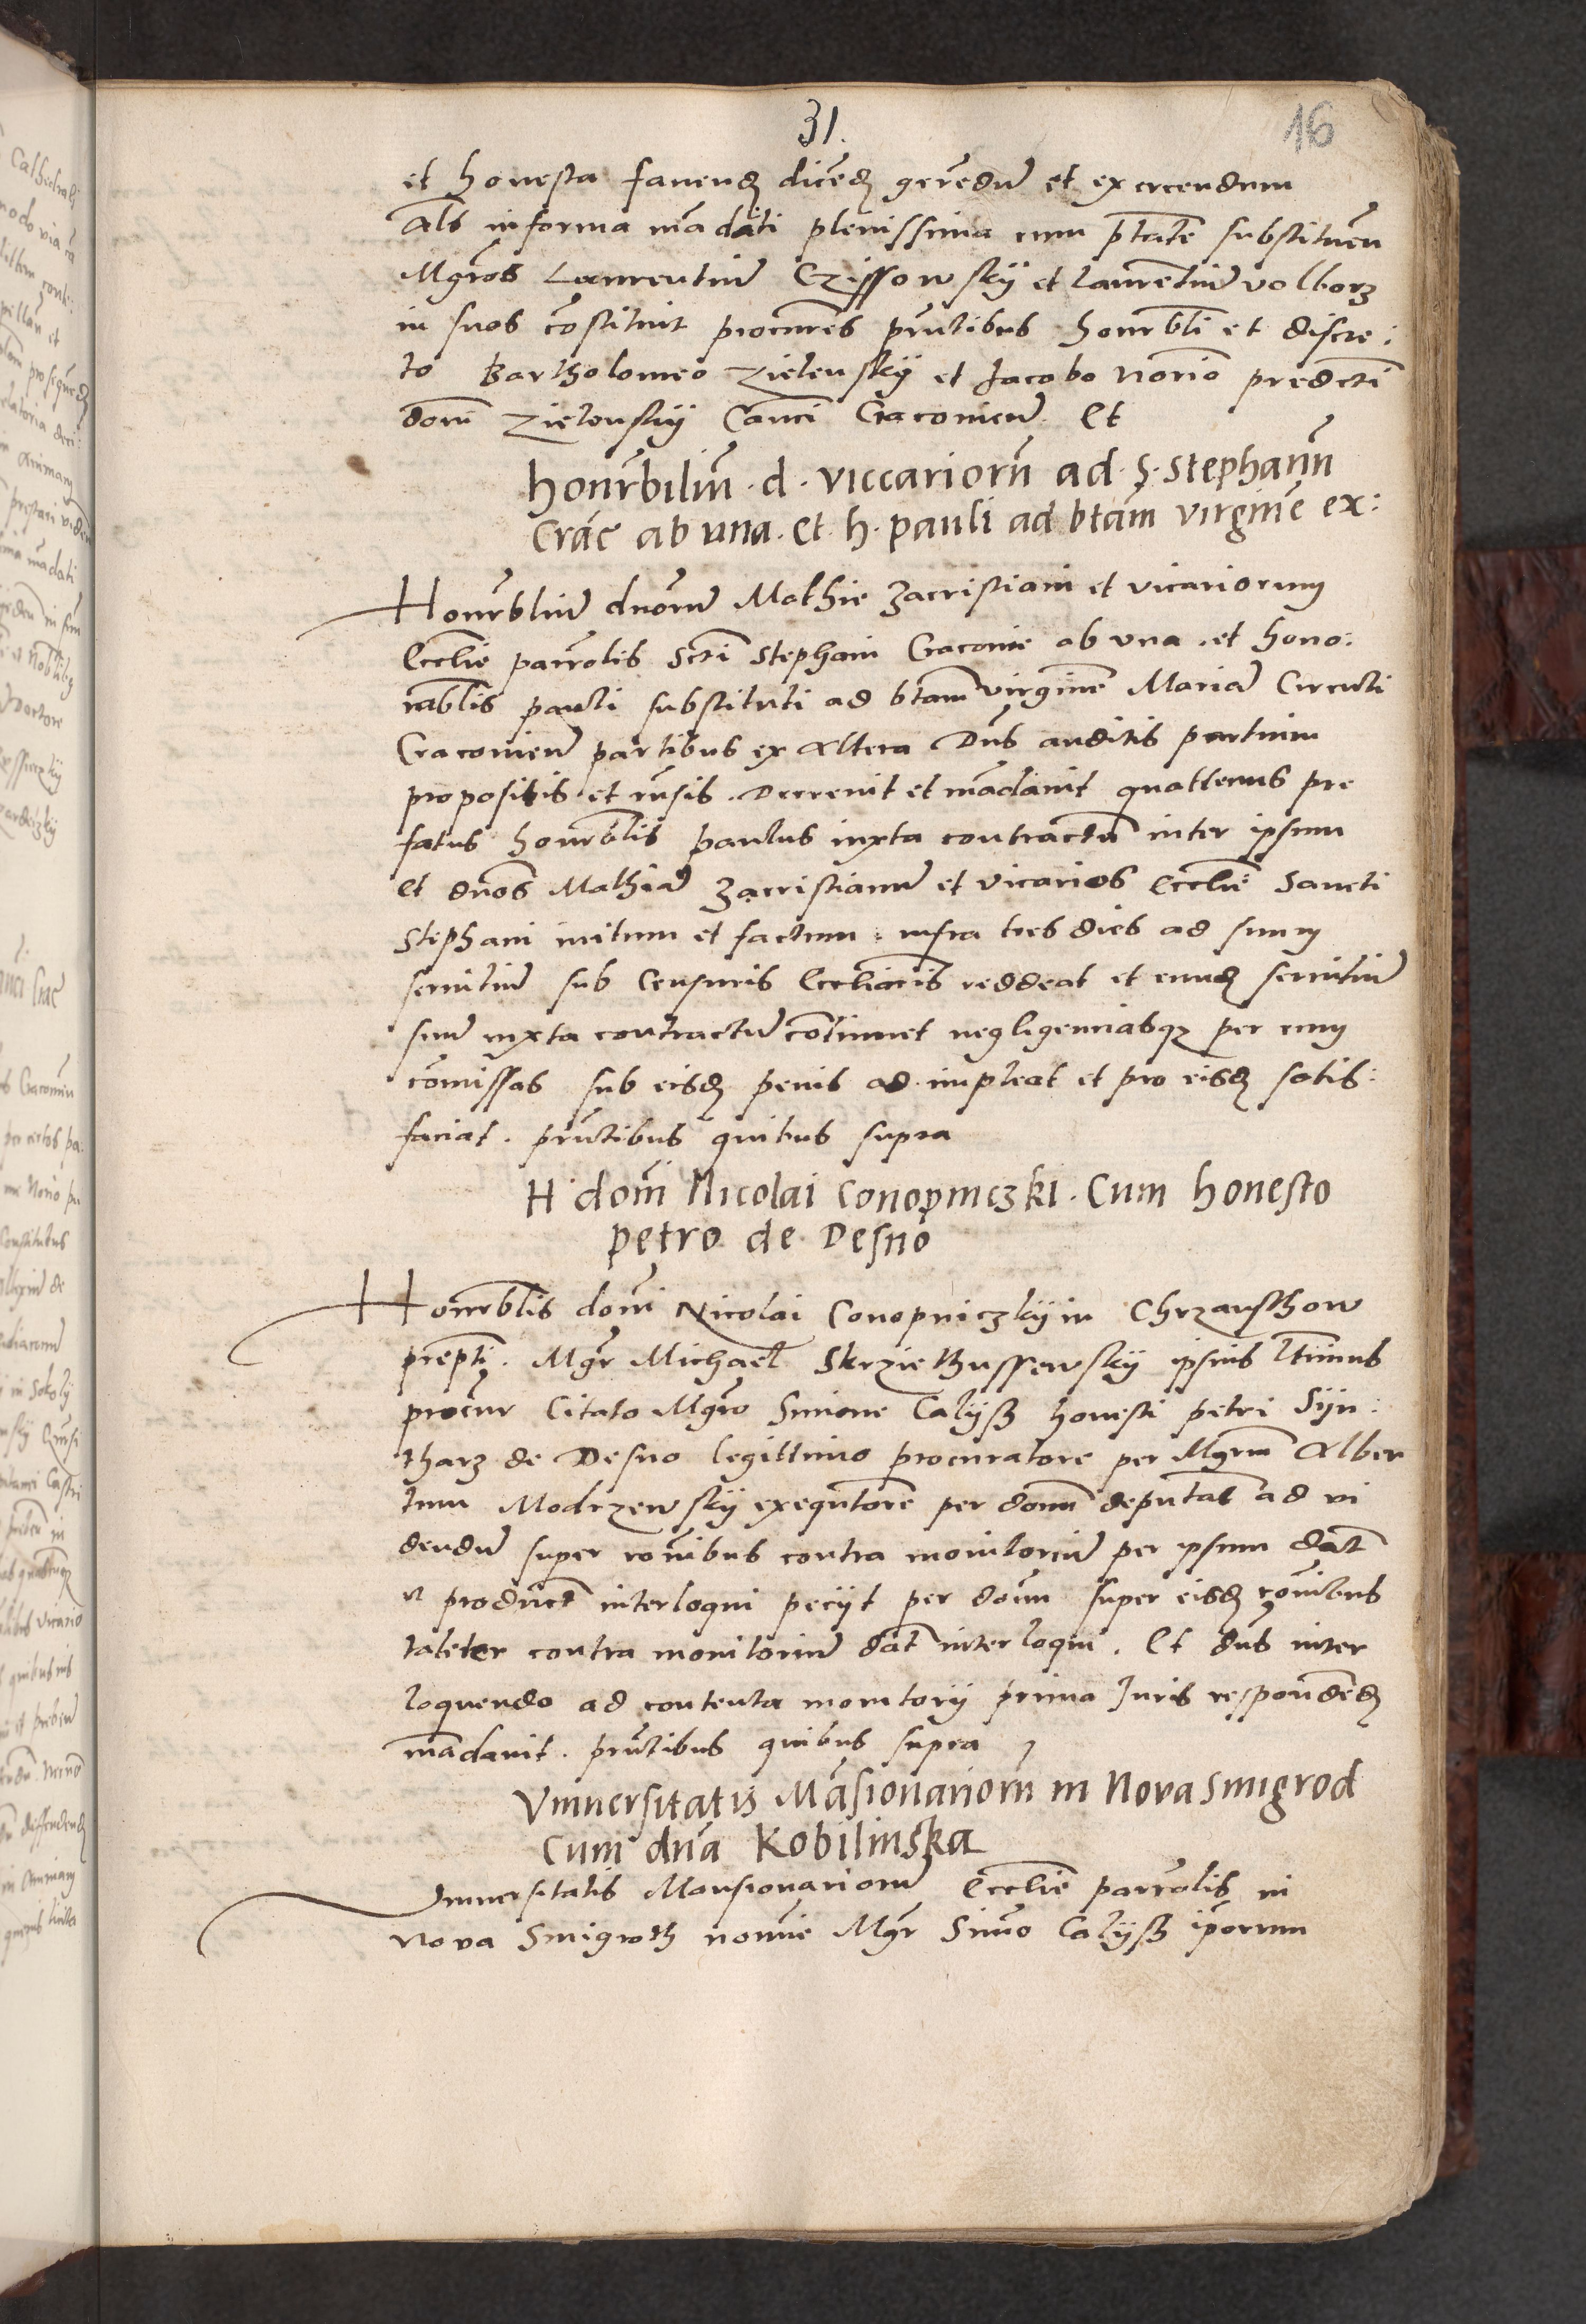 31.
16
et honesta faciend dicēd gerēdū et exercendum
Als in forma mādati plenissima cum ptāte substituēn
Mgros Laurentiū Czissowskÿ et laurētiū volborz
in suos cōstituit procūres prntibus honrbli et discre:
to Bartholomeo Zielenskÿ et Jacobo norio predcti
dom̄ Zielenskÿ Canci Cracovien̄. Et
honrbiliū . d . viccariorū ad . S . stephanū
Crac ab una . et . h . pauli ad btam virginē ex:
Honrbliū dnorū Mathie Zacristiani et vicariorum
Ecclie parrolis scti Stephani Cracovie ab vna . et hono:
rablis pauli substituti ad btam virginē Mariā Circuli
Cracovien̄ partibus ex altera Dns auditis partium
propositis et rnsis . Decrevit et mādavit quattenus pre
fatus honrblis paulus iuxta contractū inter ipsum
et dnos Mathiā Zacristianū et vicarios Ecclie Sancti
Stephani initum et factum infra tres dies ad suum
servitiū sub Censuris Eccliacis reddeat et eund servitiū
suū iuxta contractū cōtinuet negligenciasqz per eum
cōmissas sub eisd penis ad impleat et pro eisd satis:
faciat . prntibus quibus supra
H dom̄ Nicolai Conopniczki . Cum honesto
petro de Desno
Honrblis dom̄ Nicolai Conopniczkÿ in Chrzansthow
prepti . Mgr Michael SkrzieBussewskÿ ipsius ltimus
procur Citato Mgro Simone Calÿß honesti petri Sÿn:
tharz de Desno legittimo procuratore per Mgrm Alber
tum Modrzewskÿ exequtore per dom̄ deputat ad vi
dendū super ronibus contra monitoriū per ipsum dat
et product interloqui peciit per dom̄ super eisd ronibus
taliter contra monitoriū dat interloqui . Et dns inter
loquendo ad contenta monitorÿ prima Juris respondēd
mādavit . prntibus quibus supra
Vniversitatis Māsionariorū in Nova Smigrod
Cum dna Kobilinska
Vniversitatis Mansionariorū Ecclie parrolis in
Nova Smigroth nomie Mgr Simo Calÿß iporum